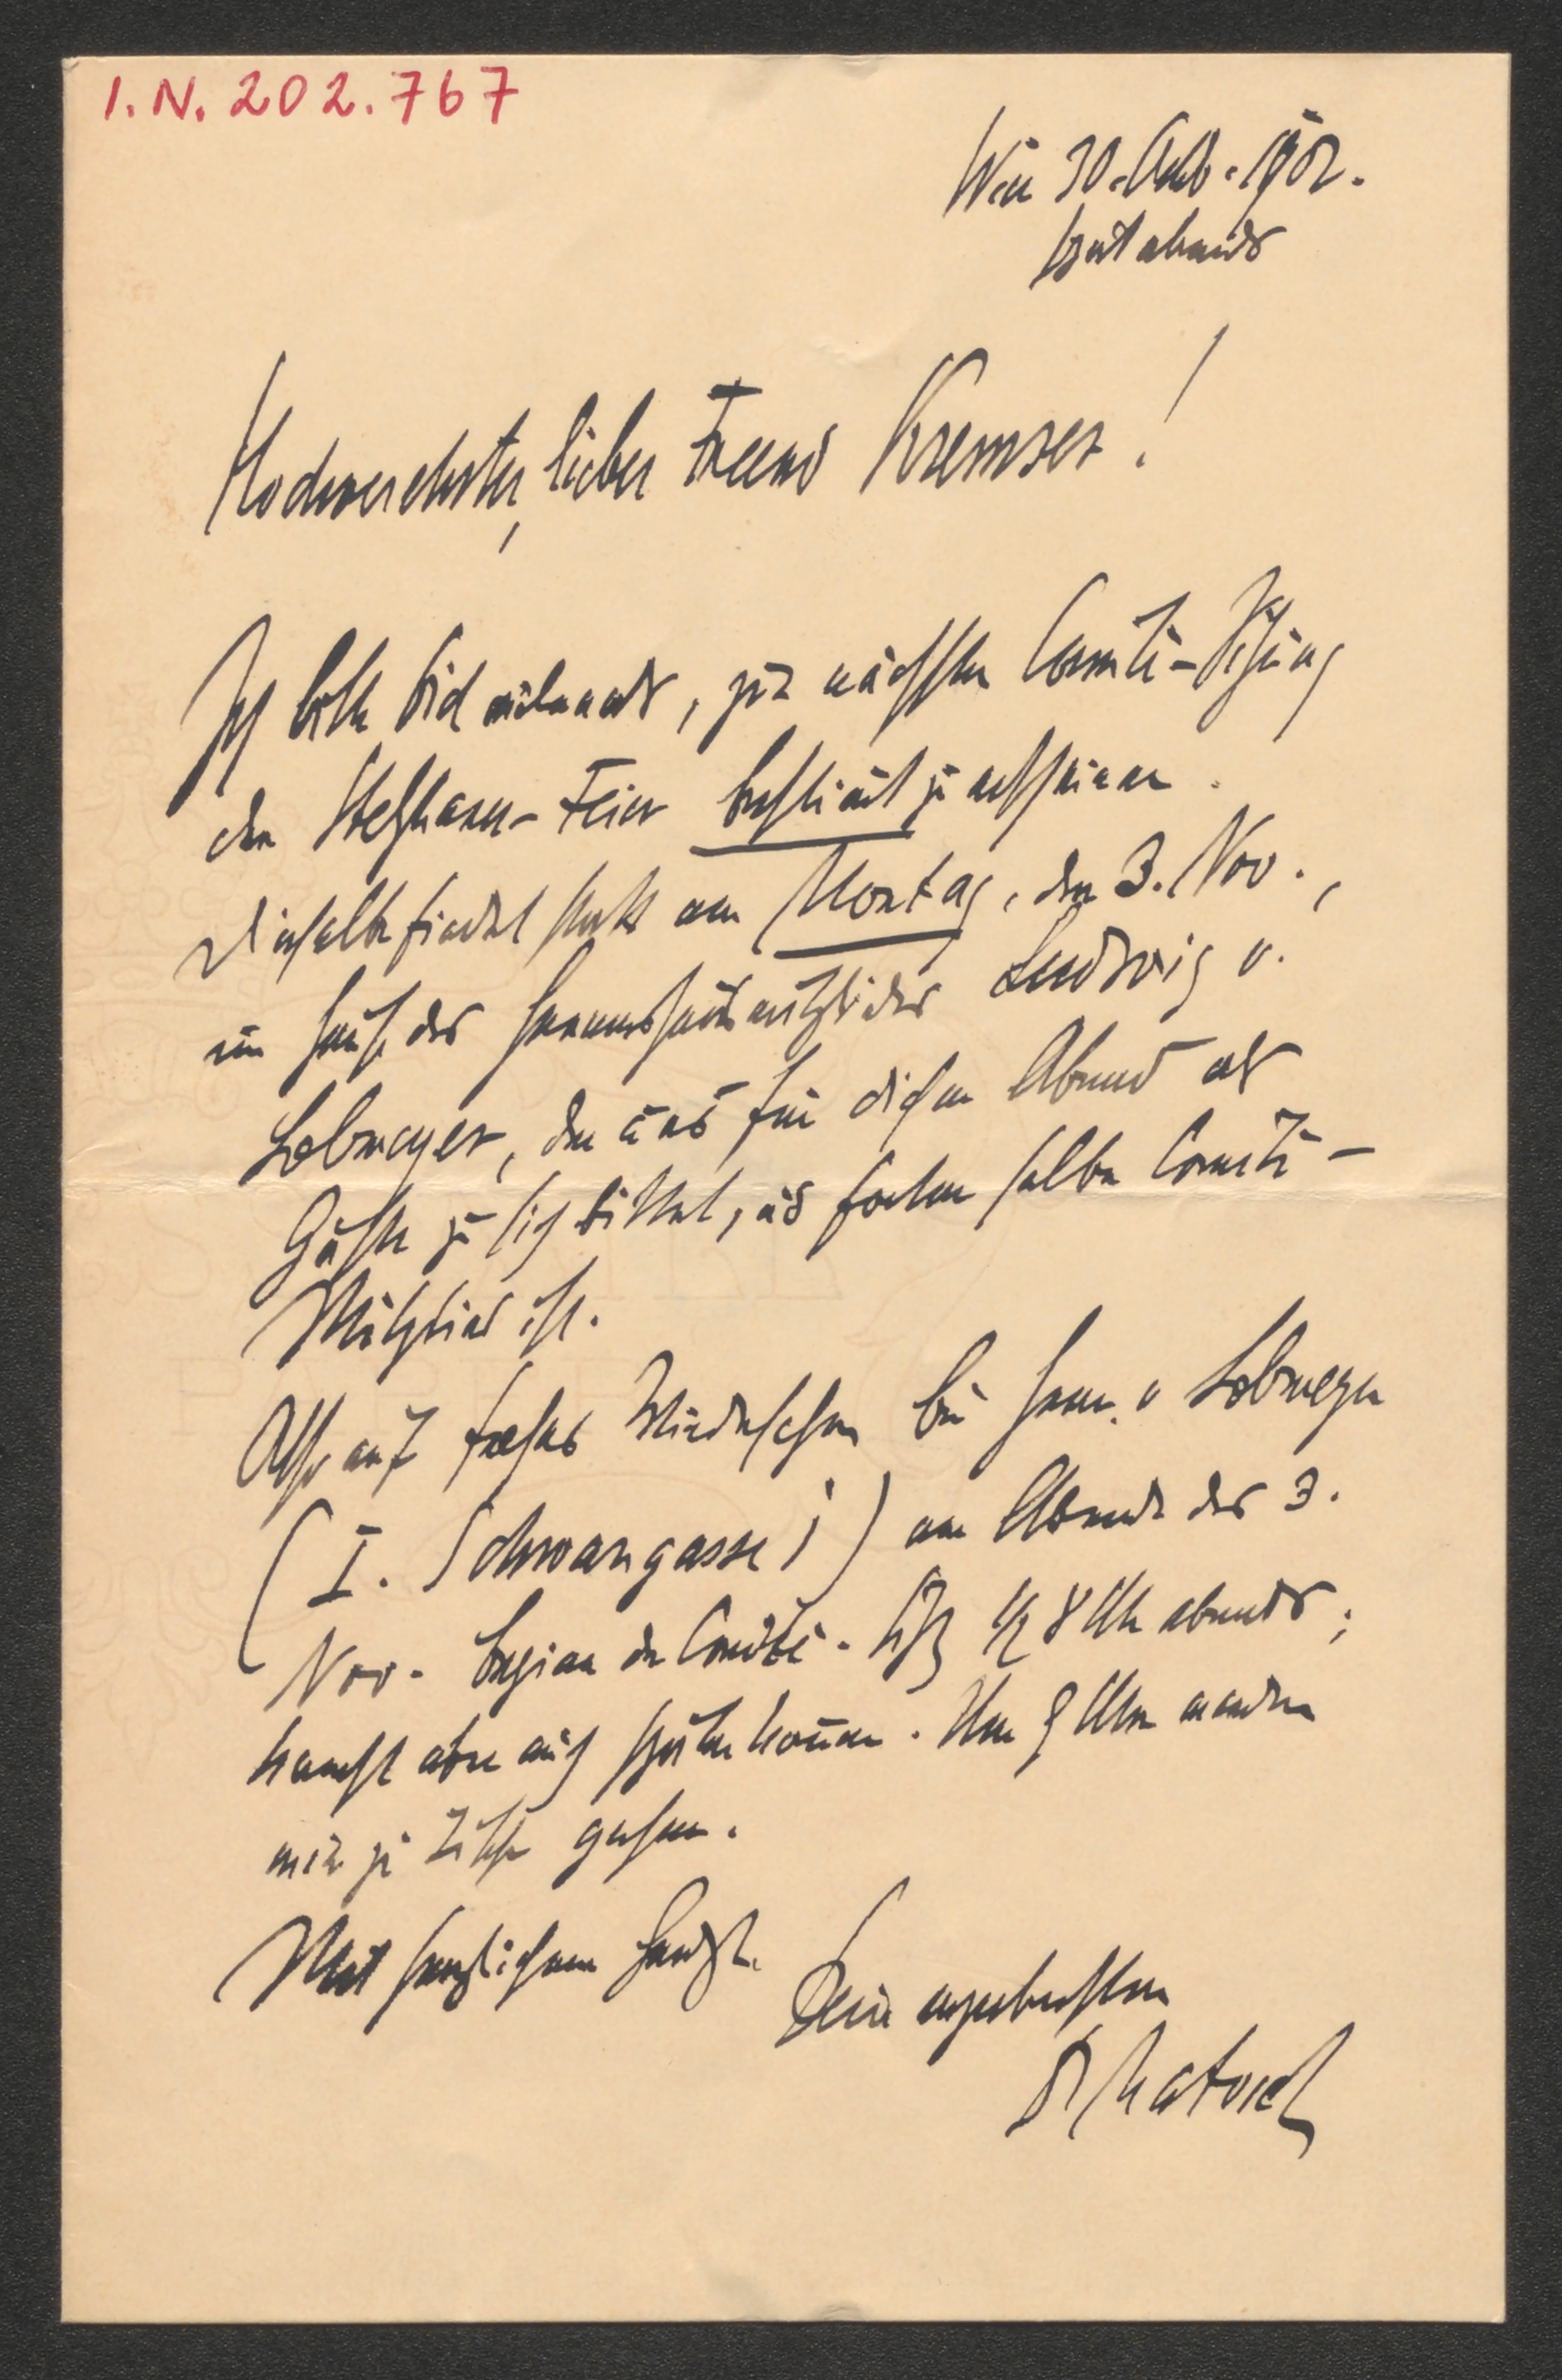 I.N. 202.767
Wien 30. Okt. 902.
spät abends
Hochverehrter, lieber Freund Kremser!
Ich bitte Dich vielmals, zur nächsten Comité-Sitzung
der Stelzhamer-Feier bestimmt zu erscheinen.
Dieselbe findet statt am Montag, den 3. Nov.,
im Hause des Herrenhausmitgliedes Ludwig v.
Lobmeyer, der uns für diesen Abend als
Gäste zu sich bittet, da er selbst Comité-
Mitglied ist.
Also auf frohes Wiedersehen bei Herrn v Lobmeyer
(I. Schwangasse 1) am Abende des 3.
Nov. Beginn der Comité-Sitzg ½ 8 Uhr abends;
kannst aber auch später kommen. Um 9 Uhr werden
wir zu Tische gehen.
Mit herzlichem Handschl.
Dein ergebenster